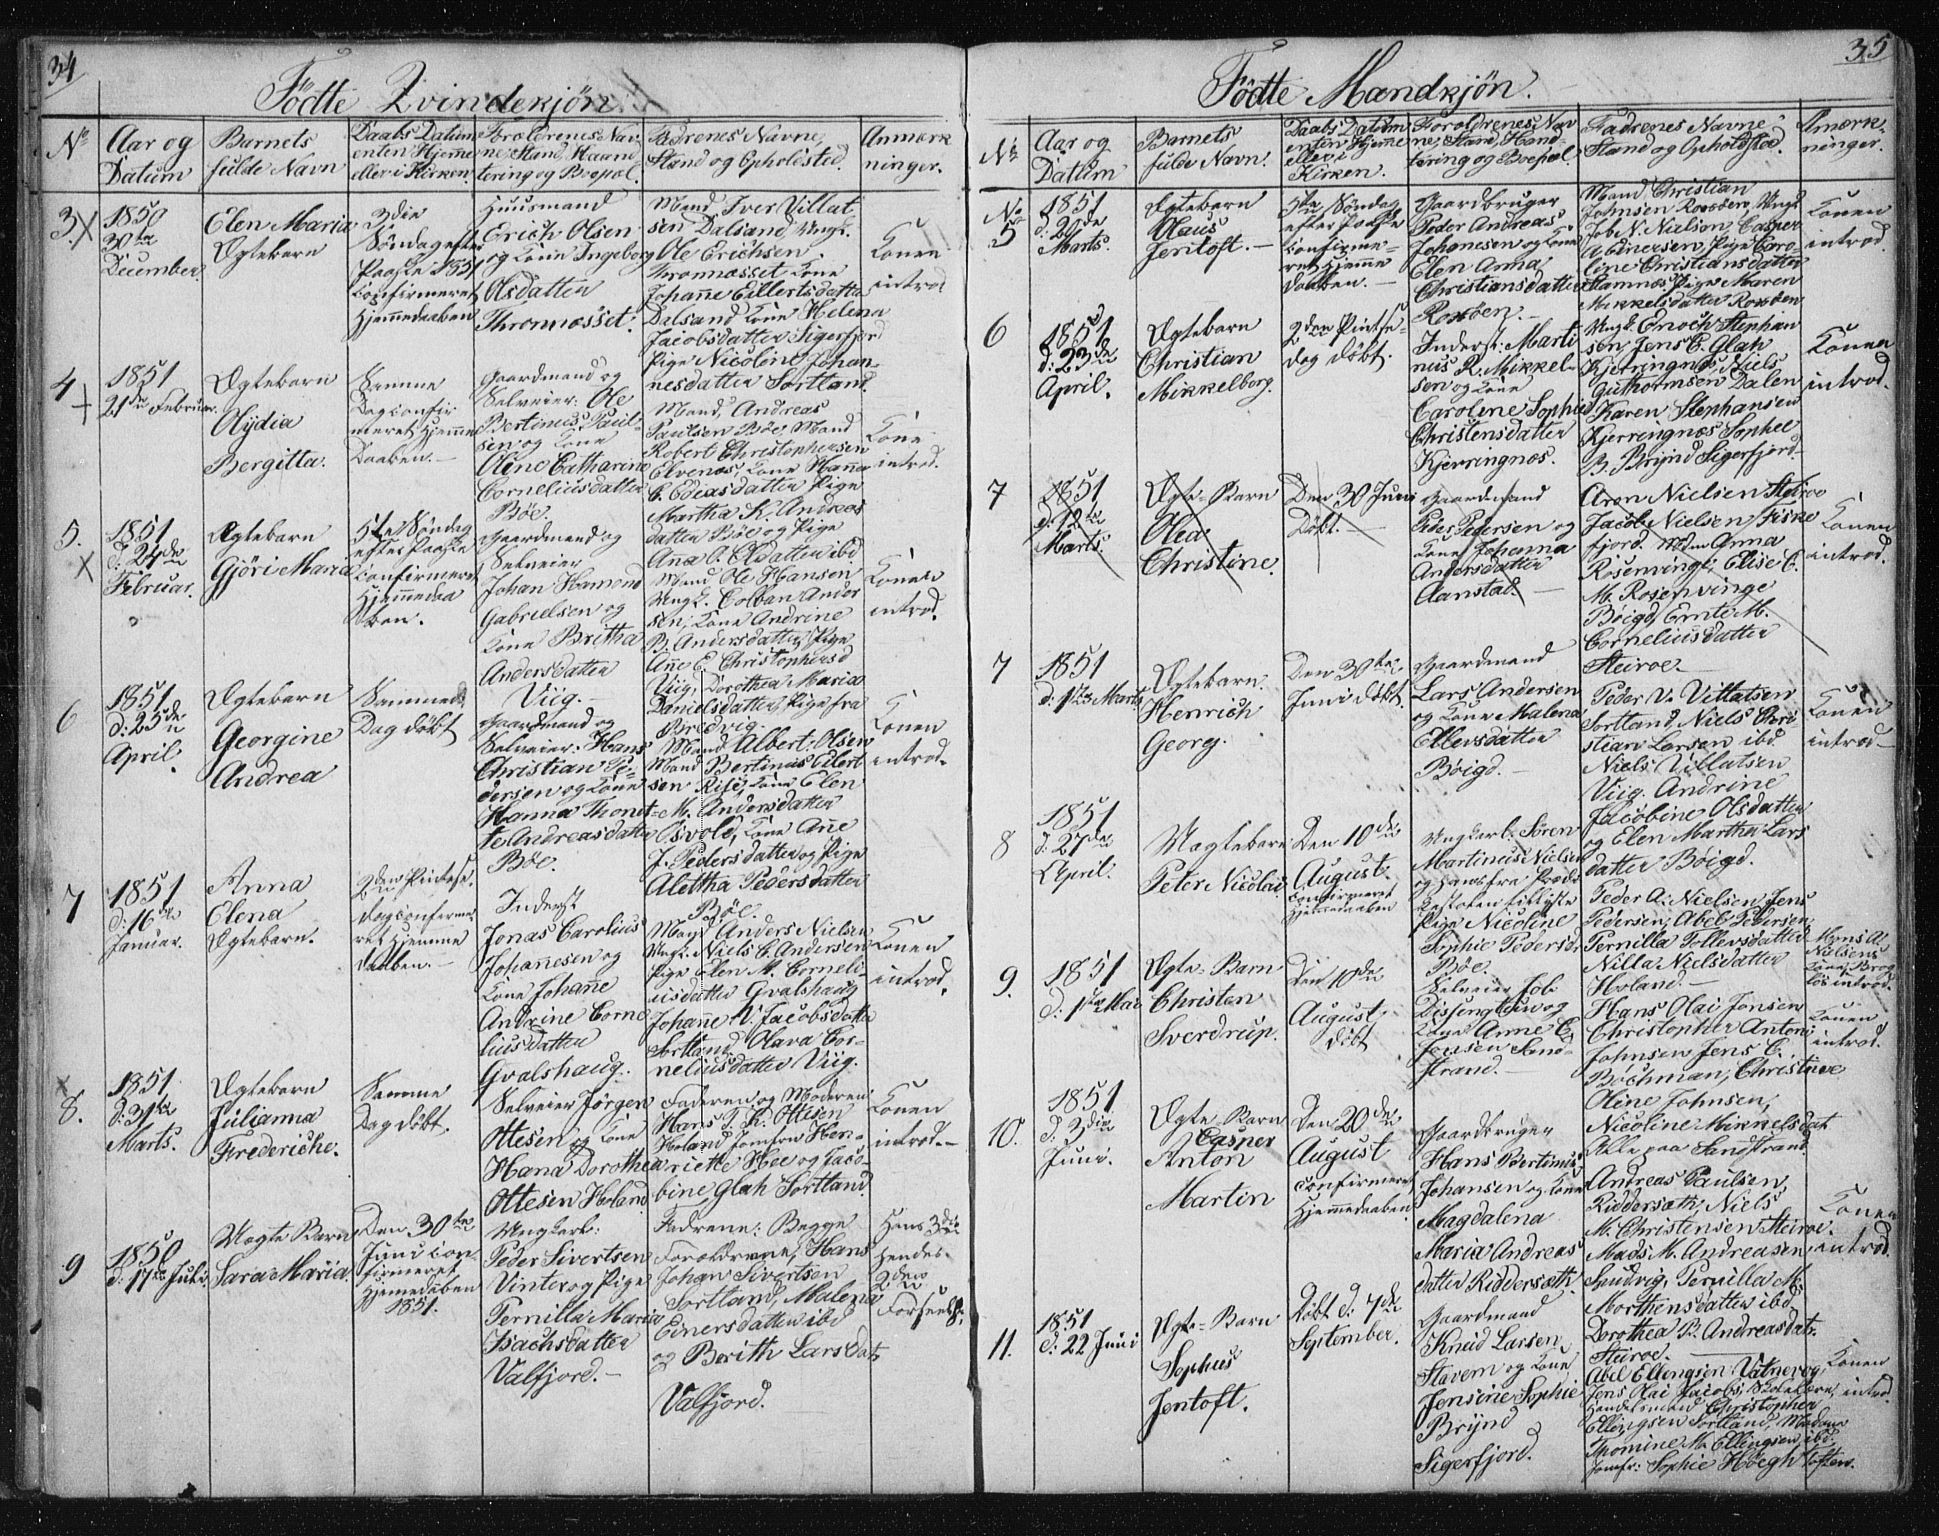 34
Födte Qvindekjön
No
Aar og
Datum
Barnets
fulde Navn
Daabs Datum
enten Hjemme
eller i Kirken
Forældrenes Nav-
ne, Stand, Haand-
tering og Bopæl.
Fadrenes Navne,
Stand og Opholdsted.
Anmærk
ninger.
3.
1850
30te
December.
Elen Maria
Ægtebarn
3die
Søndag efter
Paaske 1851
confirmeret
Hjemmedaaben
Huusmand
Erich Olsen
og Kone Ingeborg
Olsdatter
Thronnæsset.
Mand Iver Villat
sen Dalsand Ungk.
Ole Erichsen
Thronnæsset Kone
Johanne Eillertsdatter
Dalsand Kone Helena
Jacobsdatter Sigerfjord
Pige Nicoline Johan-
nesdatter Sortland
Konen
introd
4
1851
21de Februar.
Ægtebarn
Olydia
Bergitta.
Samme
Dag confir
meret Hjemme
Daaben.
Gaardmand og
Selveier: Ole
Bertinus Paul-
sen og Kone
Oline Catharine
Corneliusdatter
Böe.
Mand, Andreas
Paulsen Böe, Mand
Robert Christophersen
Elvenæs, Kone Hanna
Martha K. Andreas
datter Böe og Pige
Ana O. Olsdatter ibd
Kone
introd.
5.
1851
d: 24de
Februar.
Ægtebarn
Gjöri Maria
5te Søndag
efter Paaske
confirmeret
Hjemmedaa
ben.
Gaardmand og
Selveier
Johan Hamond
Gabrielsen og
Kone Britha
Andersdatter
Viig.
Mand Ole Hansen
Ungk. Colban Ander
sen, Kone Andrine
B. Andersdatter, Pige
Ane E. Christophersd
Viig, Dorothea Maria
Danielsdatter, Pige fra
Bredvig.
Konen
introd.
6
1851
d: 25de
April.
Ægtebarn
Georgine
Andrea
Samme
Dag döbt
Gaardmand og
Selveier: Hans
Christian Pe-
dersen og Kone
Hanna Thonet-
te Andreasdatter
Böe.
Mand Albert Olsen
Mand Bertinus Eilert
sen Rise, Kone Elen
M. Andersdatter
Osvold, Kone Ane
J. Pedersdatter og Pige
Alettha Pedersdatter
Böe.
Konen
introd.
7
1851
d: 16de
Januar.
Anna
Elena
Ægtebarn.
2den Pintse-
dag confirme
ret Hjemme
daaben.
Inderst
Jonas Carolius
Johanesen og
Kone Johane
Andrine Corne
liusdatter
Gvalshaug.
Mand Anders Nielsen
Ungk. Niels C. Andersen
Pige Elen M. Corneli-
usdatter Gvalshaug
Johanne V. Jacobsdatter
Sortland, Olava Cor-
neliusdatter Viig.
Konen
introd.
8.
1851
d: 31te
Marts.
Ægtebarn
Julianna
Frederiche.
Samme
Dag döbt.
Selveier Jörgen
Ottesen og Kone
Hana Dorothea
Ottesen Holand
Faderen og Moderen
Hans T. K. Ottesen
Holand, Jomfru Hen-
riette Hee og Jaco-
bine Glah Sortland
Konen
introd.
9
1850
d: 17de Juli.
Uægte Barn
Sara Maria.
Den 30te
Juni con-
firmeret
Hjemmedaaben
1851.
Ungkarl:
Peder Sivertsen
Vinter og Pige
Pernilla Maria
Isachsdatter
Valfjord.
Fadrene: Begge
Forældrene, Hans
Johan Sivertsen
Sortland, Malena
Einersdatter ibd
og Berith Larsdatr
Valfjord.
Hans 3die
Hendes
2den
Forseelse.
35
Födte Mandkjön.
No
Aar og
Datum
Barnets
fulde Navn.
Daabs Datum
enten Hjemme
eller i
Kirken.
Forældrenes Nav
ne, Stand, Hand-
tering og Bopæl
Fadrenes Navne
Stand og Opholdsted.
Anmærk-
ninger.
No
5
1851
d: 29de
Marts.
Ægtebarn
Olaus
Jentoft.
5te Søndag
efter Paaske
confirme-
ret Hjemme
daaben.
Gaardbruger
Peder Andreas
Johannesen og Kone
Elen Anna
Christiansdatter
Roesöen.
Mand Christian
Johnsen Roesöen, Ungk.
Job N. Nielsen, Casper
Abnersen, Pige Caro-
line Christiansdatter
Stamnæs, Pige Maren
Mikkelsdatter Roesöen
Konen
introd.
6
1851
d: 23de
April.
Ægtebarn
Christian
Mikkelborg.
2den Pintse-
dag döbt.
Inderst: Marti
nus R. Mikkel-
sen og Kone
Caroline Sophie
Christensdatter
Kjerringnæs.
Ungk. Enoch Stephan
sen, Jens C. Glah
Kjerringnæs, Niels
Guthormsen Dalen
Karen Stephansen
Kjerringnæs Sophie
B. Brynd Sigerfjord
Konen
introd.
7
1851
d: 12te
Marts.
Ægte-Barn
Olea
Christine.
Den 30 Juni
Döbt.
Gaardmand
Peder Pedersen og
Kone Johanna
Andersdatter
Aanstad.
Aron Nielsen Steiroe
Jacob Nielsen, Fiske
fjord, Mdm Anna
Rosenvinge, Elise C.
M. Rosenvinge
Böigd, Ernte M.
Corneliusdatter
Steiroe
Konen
introd.
7
1851
d: 1te Marts
Ægtebarn
Henrich
Georg.
Den 30te
Juni döbt.
Gaardmand
Lars Andersen
og Kone Malena
Ellevsdatter
Böigd.
Peder V. Villatsen
Sortland, Niels Chri-
stian Larsen ibd
Niels Villatsen
Viig, Andrine
Jacobine Olsdatter
og Elen Martha Lars
datter Böigd.
Konen
introd
8
1851
d: 27de
April.
Uægtebarn
Peter Nicolai
Den 10de
August.
confirmeret
Hjemmedaaben
Ungkarl: Sören
Martinus Nielsen
Pige Nicoline
Sophie Pedersd.
Böe.
Peder A. Nielsen, Jens
Pedersen, Abel Pedersen,
Pernilla Tollevsdatter
Nilla Nielsdatter
Holand.
9.
1851
d: 1te Mai
Ægte-Barn
Christen
Sverdrup.
Den 10de
August
döbt
Selveier Job
Dissingtun og
Kone Anne C.
Jensen Sand-
strand.
Hans Olai Jonsen
Christopher Anton
Johnsen, Jens C.
Bochman, Christine
Oline Johnsen,
Nicoline Mikkelsdat
Alle paa Sandstrand
Konen
introd.
10.
1851
d: 3die
Juni.
Ægte Barn
Casper
Anton
Martin
Den 20de
August
confirmeret
Hjemmedaaben
Gaardbruger
Hans Bertinus
Johansen og Kone
Magdalena
Maria Andreas
datter Riddersæth.
Andreas Paulsen,
Riddersæth, Niels
M. Christensen Steiroe.
Mads M. Andreasen
Sandvig, Pernilla M.
Morthensdatter ibd
Dorothea B. Andreasdatr.
Steiroe.
Konen
introd.
11.
1851
d: 22 Juni
Ægte-Barn
Sophus
Jentoft.
Döbt d: 7de
September.
Gaardmand
Knud Larsen
Stavem og Kone
Jensine Sophie
Brynd
Sigerfjord.
Abel Ellingsen Vatnevog,
Jens Olai Jacobs, Skolelærer,
Handelsmand Christopher
Ellingsen Sortland, Madame
Thomine M. Ellingsen ibd.
Jomfr: Sophie Höegh Toften.
Konen
introd